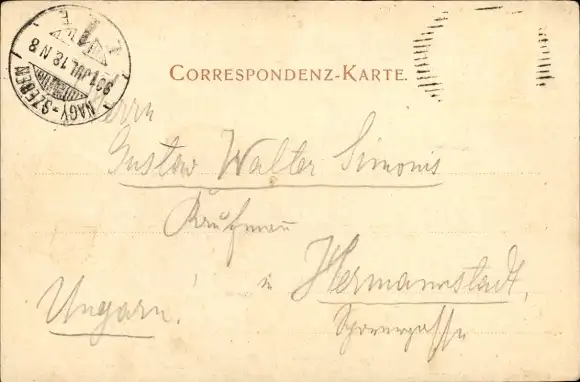 CORRESPONDENZ-KARTE.
NAGY-SZEBEN
901 JUL 18 N 8
Herrn
Gustav Walter Simonis
Kaufmann
in Hermannstadt,
Ungarn!